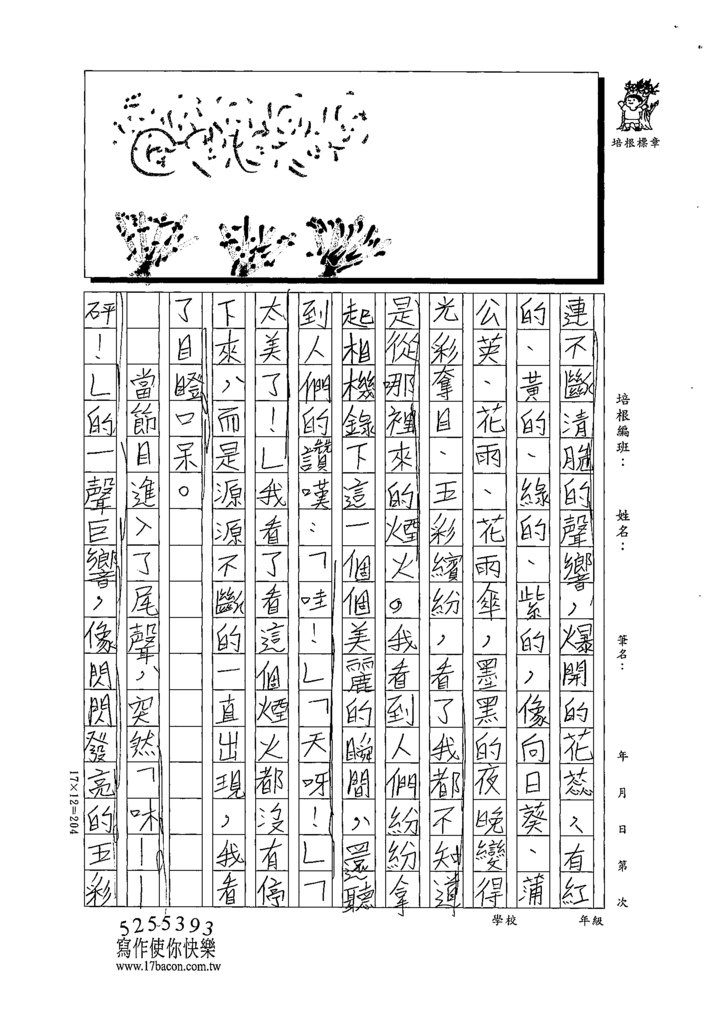 培根標章
培根編班：
姓名：
筆名：
年 月 日 第 次
連不斷清脆的聲響，爆開的花蕊，有紅
的、黃的、綠的、紫的，像向日葵、蒲
公英、花雨、花雨傘，墨黑的夜晚變得
光彩奪目、五彩繽紛，看了我都不知導
是從哪裡來的煙火。我看到人們紛紛拿
起相機錄下這一個個美麗的瞬間，還聽
到人們的讚嘆：「哇！」「天呀！」「
太美了！」我看了看這個煙火都沒有停
下來，而是源源不斷的一直出現，我看
了目瞪口呆。
當節目進入了尾聲，突然「咻——
砰！」的一聲巨響，像閃閃發亮的五彩
17×12=204
學校
年級
5255393
寫作使你快樂
www.17bacon.com.tw